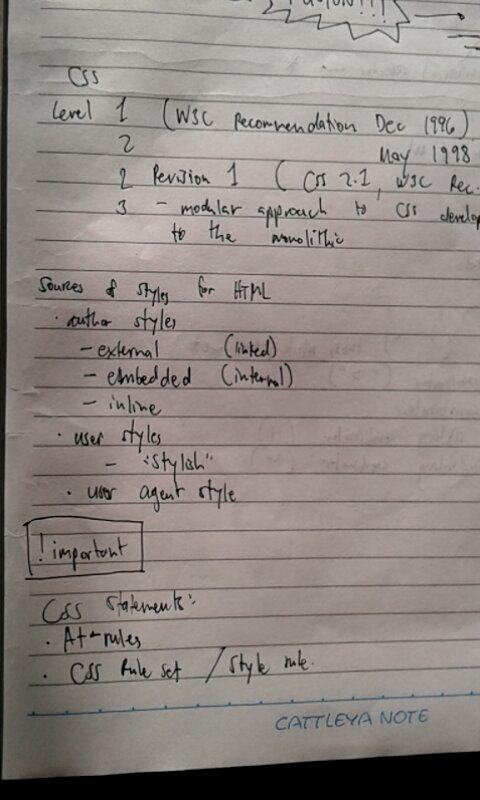 CSS
Level 1 (WSC Recommendation Dec 1996)
2 May 1998
2 Revision 1 ( CSS 2.1, WSC Rec.
3 - modular approach to CSS develop
to the monolithic
Sources of styles for HTML
· author styles
- external (linked)
- embedded (internal)
- inline
· user styles
- "Stylish"
· user agent style
! important
CSS Statements:
· At-rules
· CSS Rule set / Style rule.
CATTLEYA NOTE